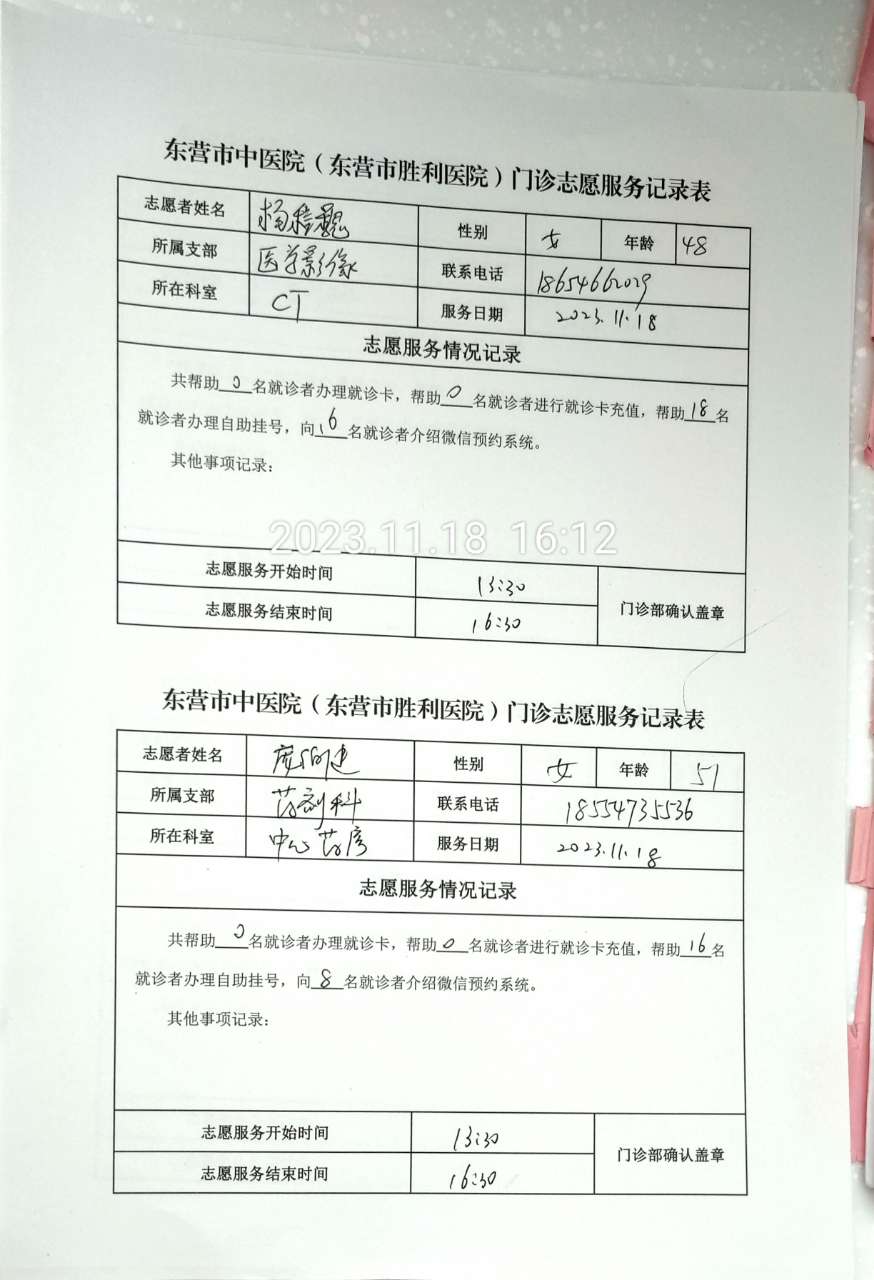 东营市中医院（东营市胜利医院）门诊志愿服务记录表
志愿者姓名 杨 性别 女 年龄 48
所属支部 医学影像 联系电话
所在科室 CT 服务日期 2023.11.18
志愿服务情况记录
共帮助0名就诊者办理就诊卡，帮助0名就诊者进行就诊卡充值，帮助18名
就诊者办理自助挂号，向16名就诊者介绍微信预约系统。
其他事项记录：
2023.11.18 16:12
志愿服务开始时间 13:30
门诊部确认盖章
志愿服务结束时间 16:30
东营市中医院（东营市胜利医院）门诊志愿服务记录表
志愿者姓名 性别 女 年龄 51
所属支部 药剂科 联系电话 18554735536
所在科室 中心药房 服务日期 2023.11.18
志愿服务情况记录
共帮助0名就诊者办理就诊卡，帮助0名就诊者进行就诊卡充值，帮助16名
就诊者办理自助挂号，向8名就诊者介绍微信预约系统。
其他事项记录：
志愿服务开始时间 13:30
门诊部确认盖章
志愿服务结束时间 16:30